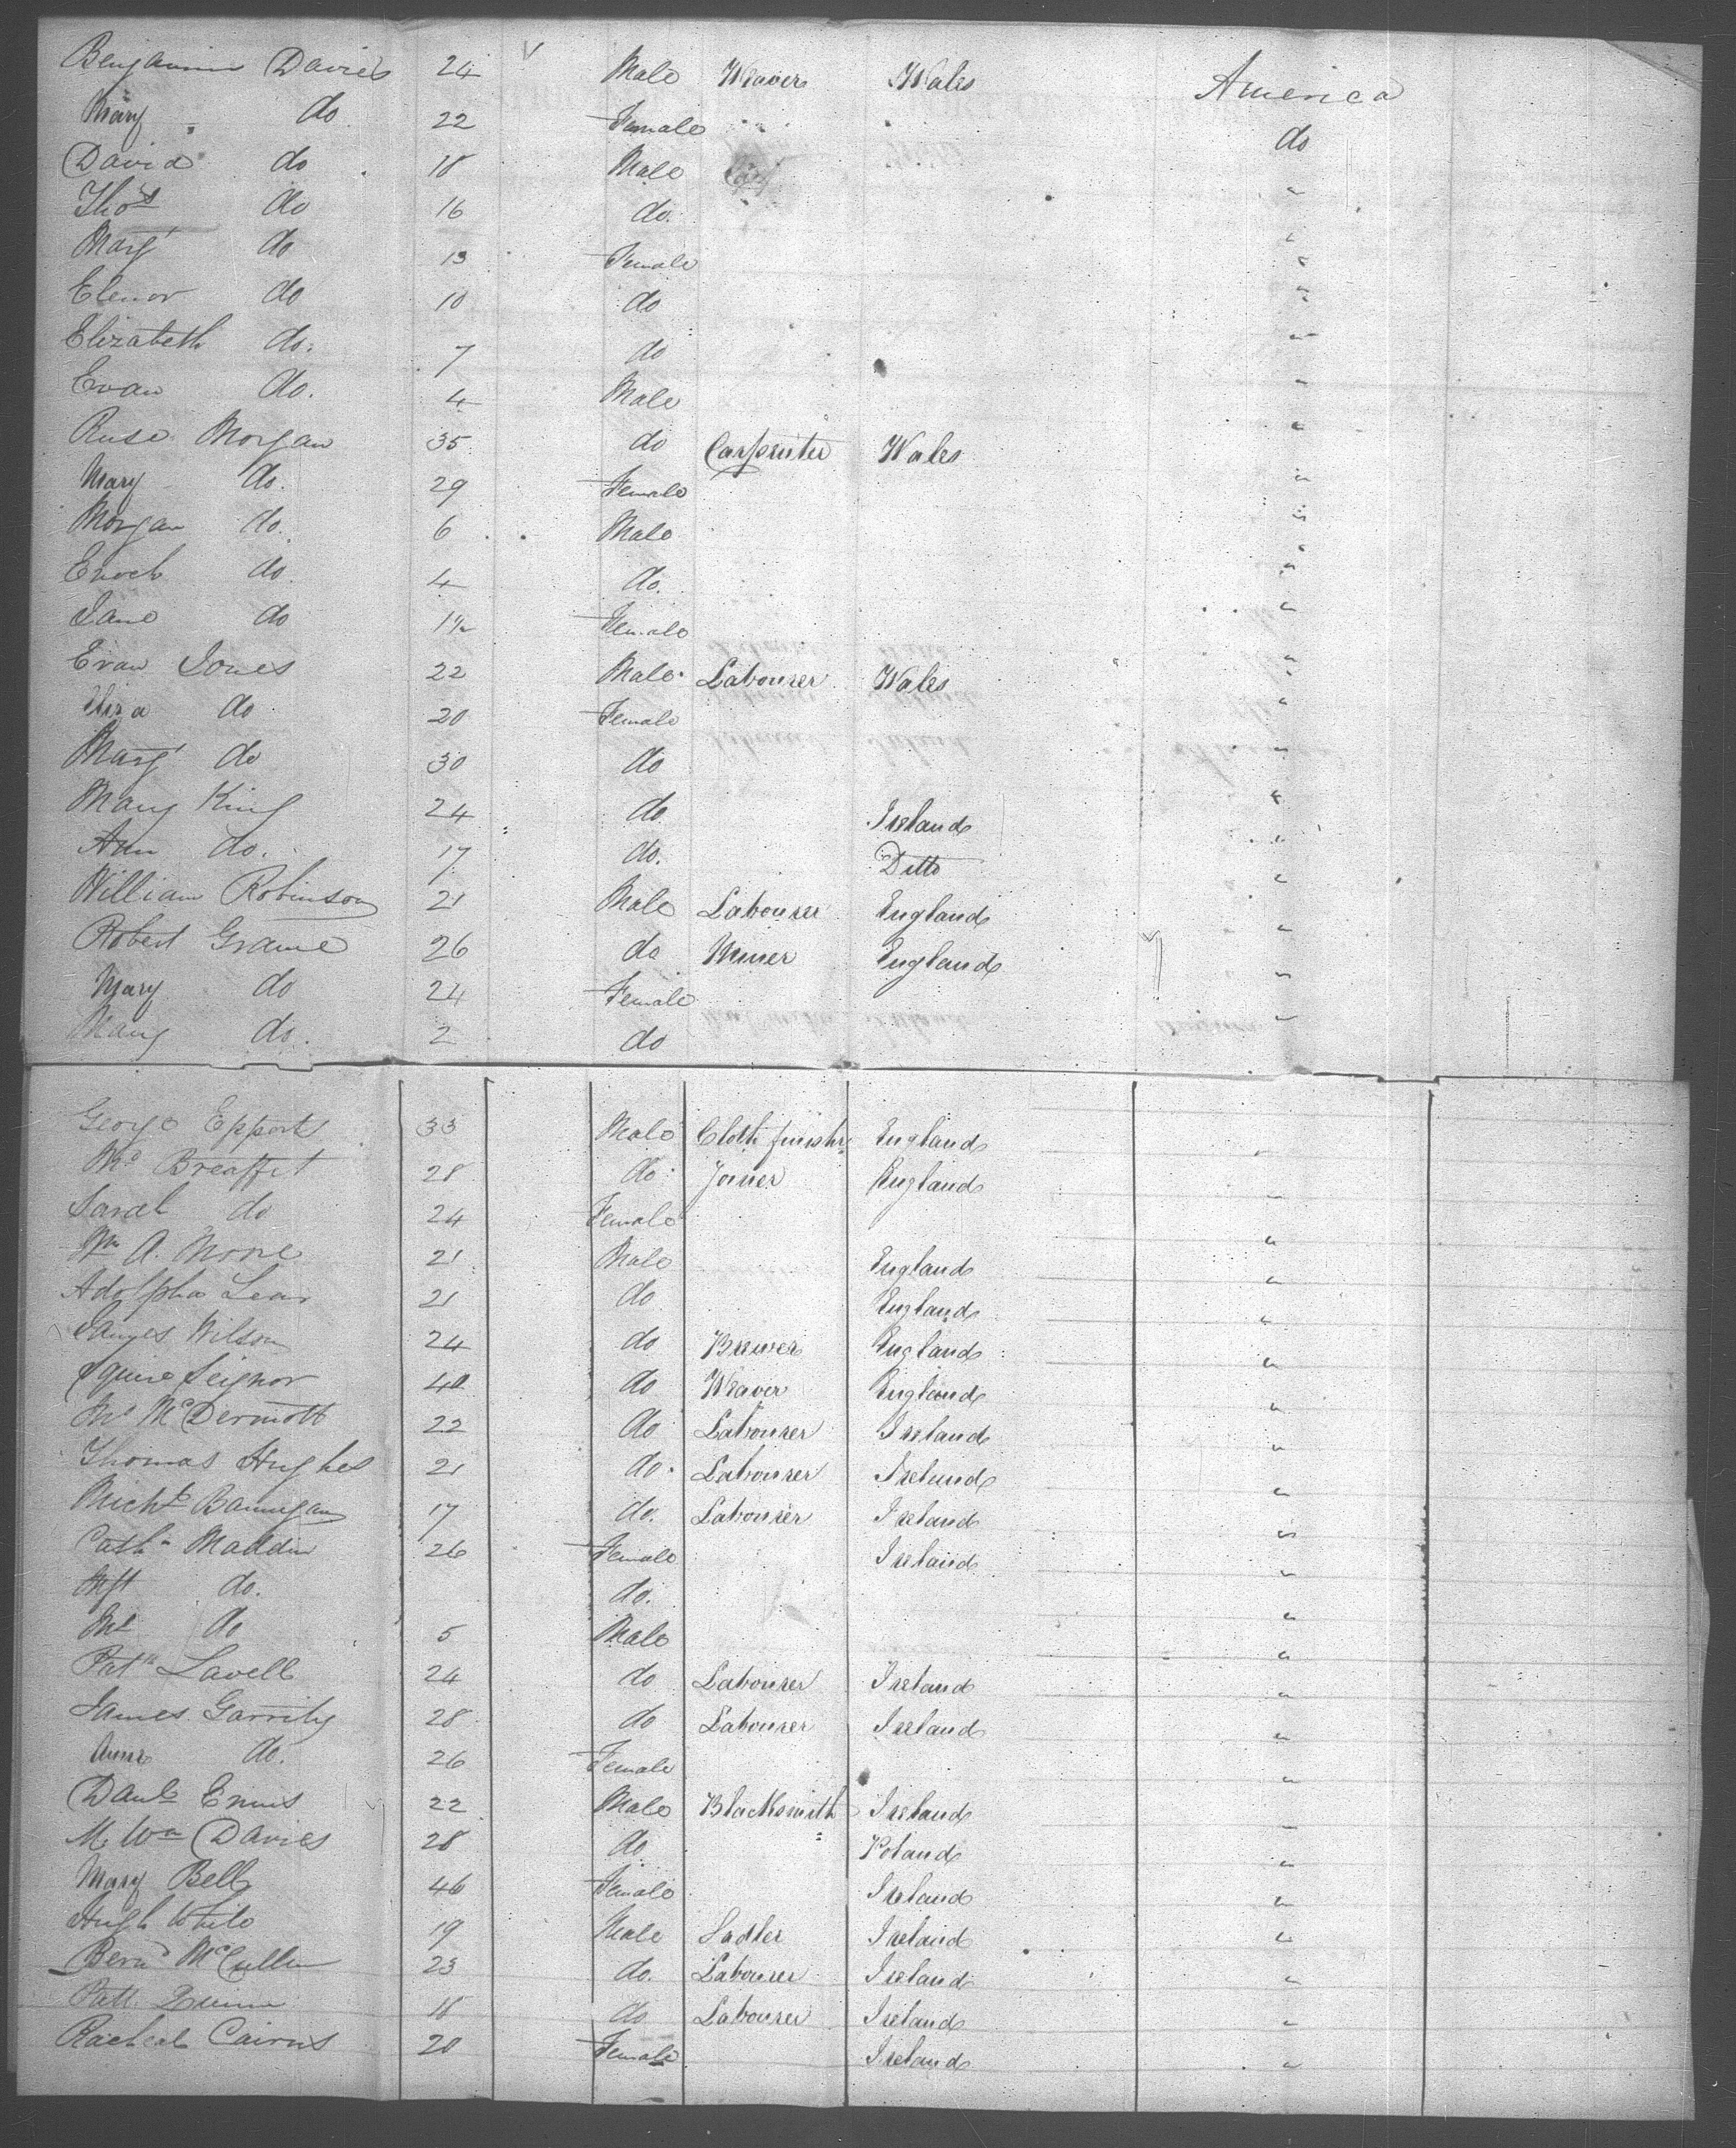 Benjamin Davies 24 Male Weaver Wales America
Mary do 22 Female do
David do 18 Male "
Thos do 16 do. "
Margt do 13 Female "
Elenor do 10 do "
Elizabeth do. 7 do "
Evan do. 4 Male "
Ruse Morgan 35 do Carpenter Wales "
Mary do. 29 Female "
Morgan do. 6 Male "
Enoch do. 4 do. "
Jane do Female "
Evan Jones 22 Male Labourer Wales "
Eliza do 20 Female "
Margt do 30 do "
Mary King 24 do Ireland "
Ann do. 17 do. Ditto "
William Robinson 21 Male Labourer England "
Robert Grame 26 do Miner England "
Mary do 24 Female "
Mary do. 2 do "
George Epports 33 Male Cloth finishr England "
Breaffit 28 do Joiner England "
Sarah do 24 Female "
Wm A. Morre 21 Male England "
Adolpha Lear 21 do England "
James Wilson 24 do Brewer England "
Squire Seignor 40 do Weaver England "
McDermott 22 do Labourer Ireland "
Thomas Hughes 21 do. Labourer Ireland "
Michl Bannegan 17 do. Labourer Ireland "
Cathn Maddin 26 Female Ireland "
do. do. "
Ml do 5 Male "
Patk Lavell 24 do Labourer Ireland "
James Garrity 28 do Labourer Ireland "
Anne do. 26 Female "
Danl Ennis 22 Male Blacksmith Ireland "
M. Wm Davies 28 do Poland "
Mary Bell 46 Female Ireland "
Hugh White 19 Male Sadler Ireland "
Bernd McCullen 23 do. Labourer Ireland "
Patt. Quinn 18 do Labourer Ireland "
Racheal Cairns 20 Female Ireland "